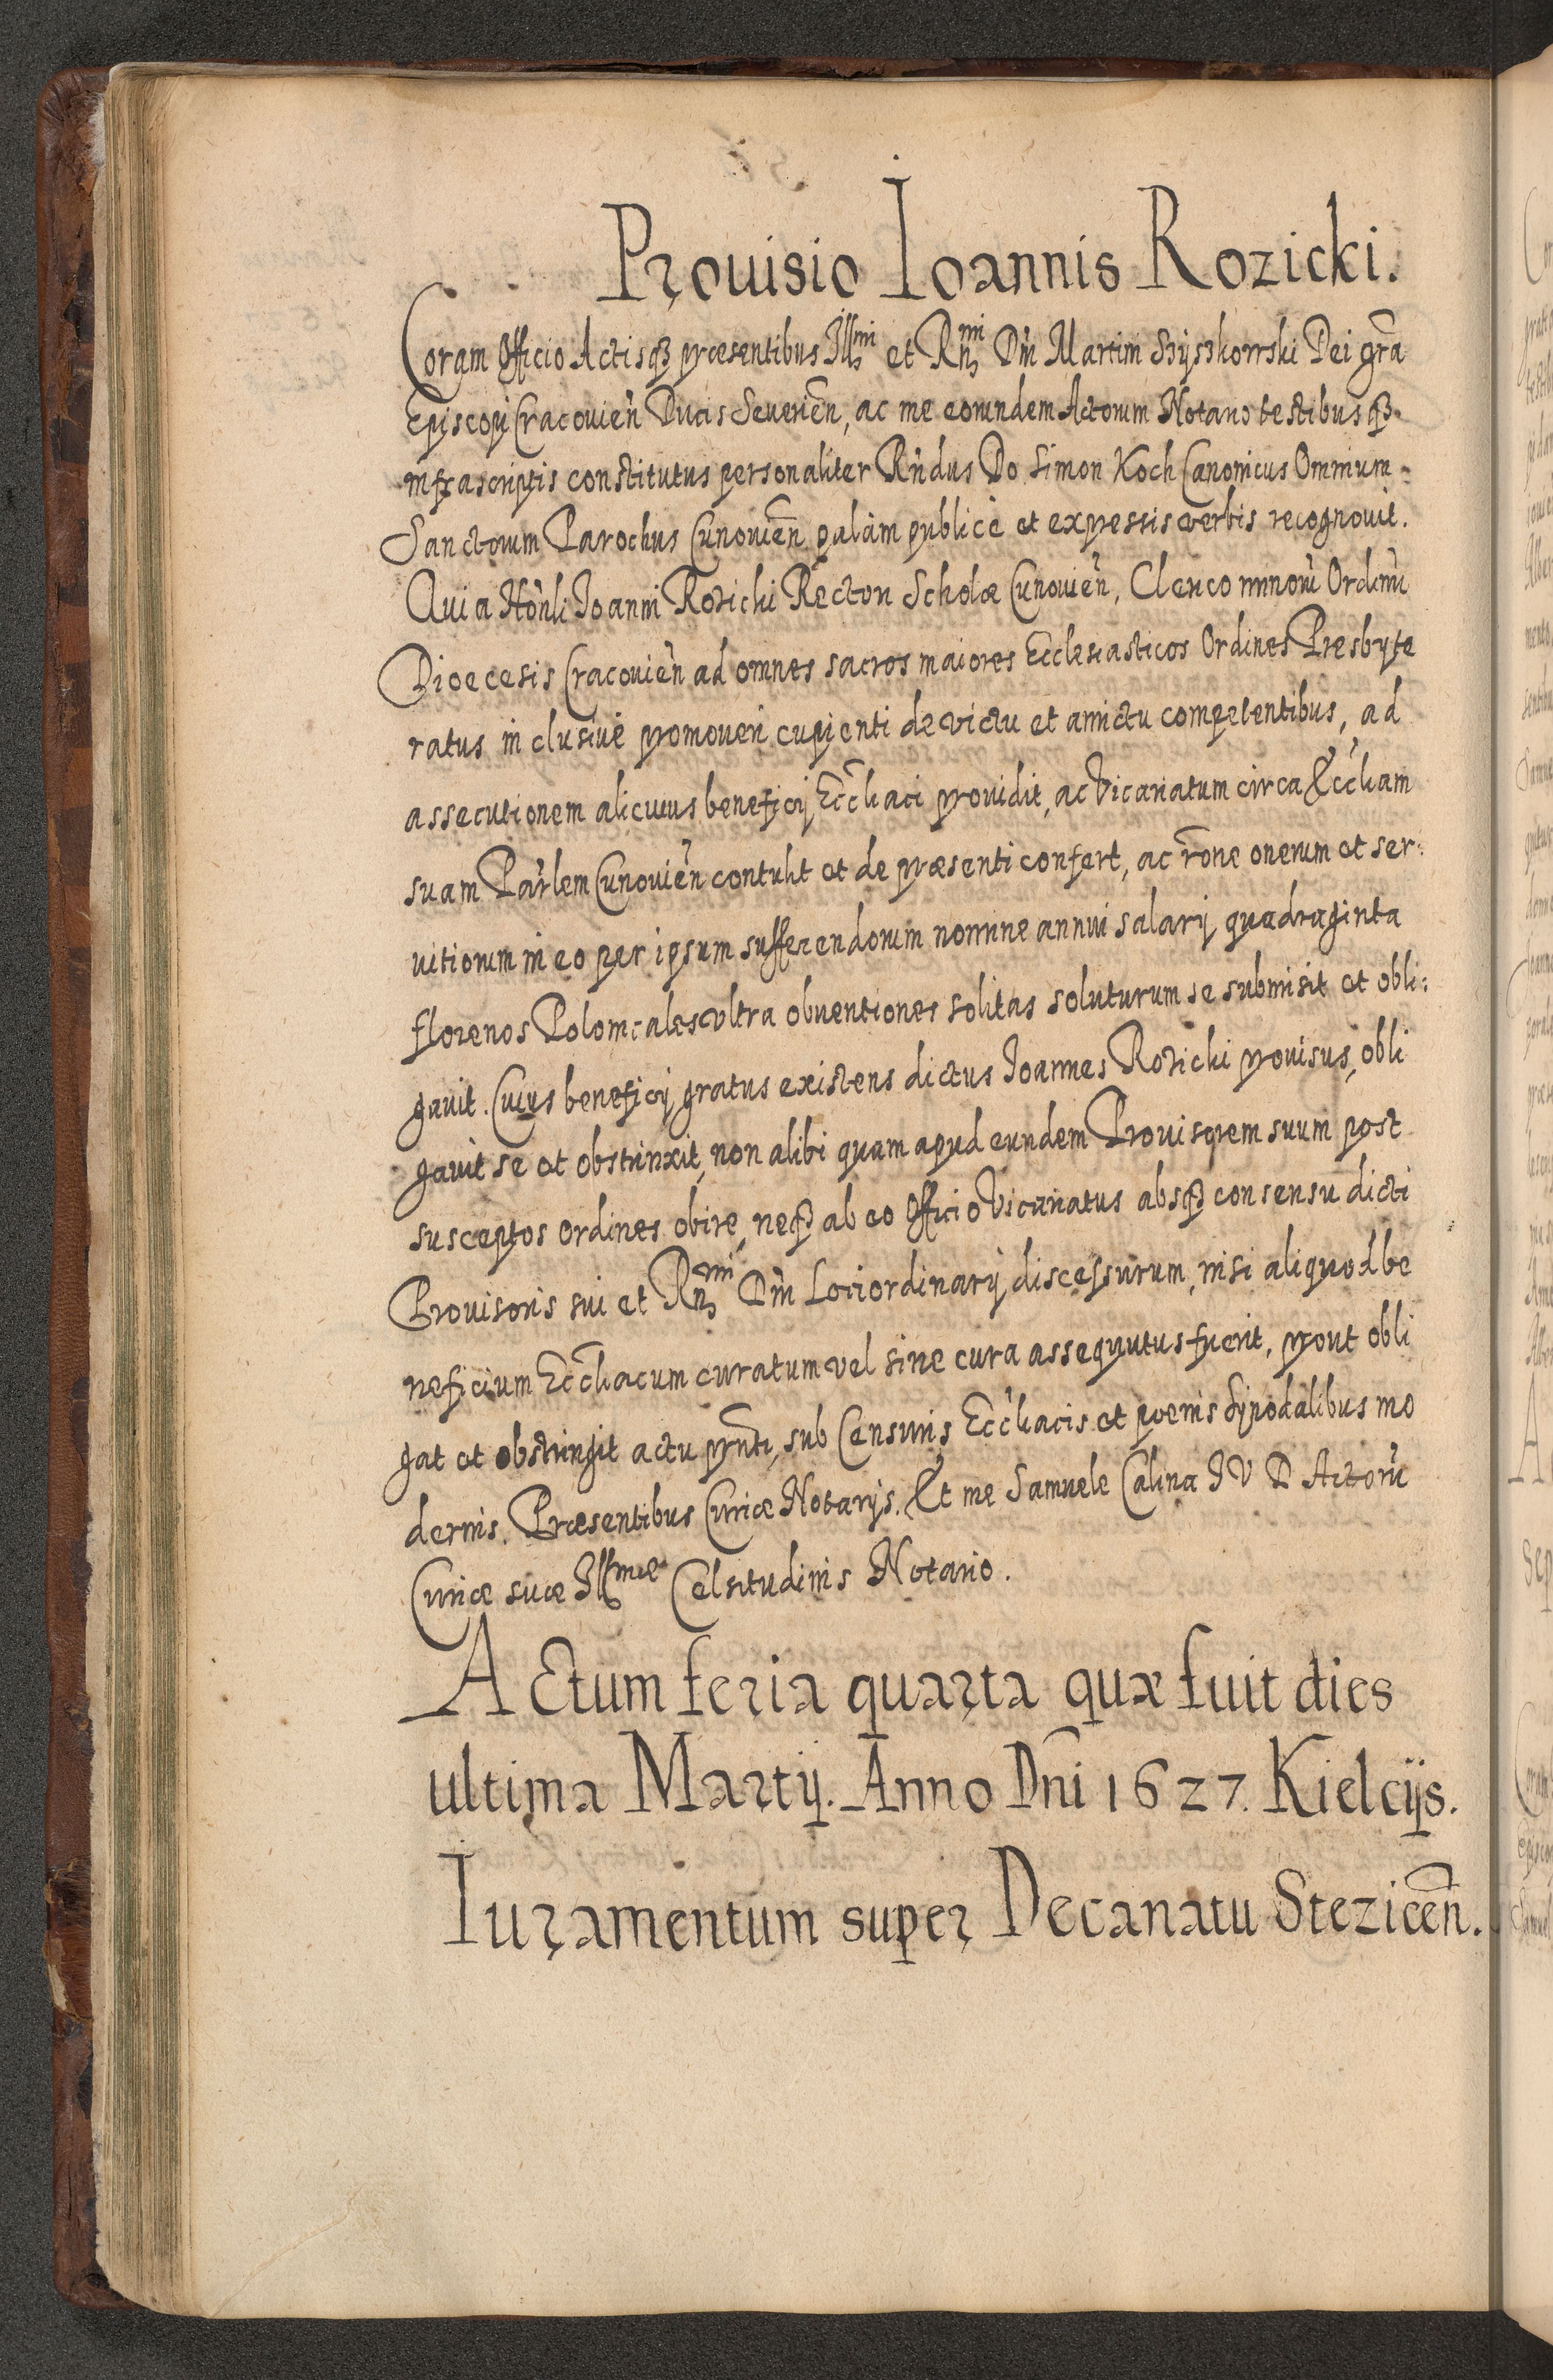 Prouisio Ioannis Rozicki.
Coram Officio Actisq3 præsentibus Illmi et Rndmi Dni Martini Szyszkowski Dei gra
Episcopi Cracouien Ducis Seuerien, ac me eorundem Actorum Notario testibusq3
infrascriptis constitutus personaliter Rndus Do Simon Koch Canonicus Omnium
Sanctorum Parochus Cunouien palam publice et expressis verbis recognouit.
Quia Honli Ioanni Rozicki Rectori Scholæ Cunouien, Clerico minoru Ordinu
Dioecesis Cracouien ad omnes sacros maiores Ecclesiasticos Ordines Presbyte
ratus inclusiue promoueri cupienti de victu et amictu competentibus, ad
assecutionem alicuius beneficij Eccliaci prouidit, ac Vicariatum circa Eccliam
suam Parlem Cunouien contulit et de præsenti confert, ac rone onerum et ser
uitiorum in eo per ipsum sufferendorum nomine annui salarij quadraginta
florenos Polonicales vltra obuentiones solitas soluturum se submisit et obli:
gauit. Cuius beneficij gratus existens dictus Ioannes Rozicki prouisus, obli
gauit se et obstrinxit, non alibi quam apud eundem Prouisorem suum post
susceptos ordines obire, neq3 ab eo Officio Vicariatus absq3 consensu dicti
Prouisoris sui et Rndmi Dni Loci ordinarij discessurum, nisi aliquod be
neficium Eccliacum curatum vel sine cura assequutus fuerit, prout obli
gat et obstringit actu prnti, sub Censuris Eccliacis et poenis Synodalibus mo
dernis. Præsentibus Curiæ Notarijs. Et me Samuele Calina I V D Actoru
Curiæ suæ Illmæ Celsitudinis Notario.
Actum feria quarta quæ fuit dies
ultima Martij. Anno Dni 1627. Kielcijs.
Iuramentum super Decanatu Stezicen.